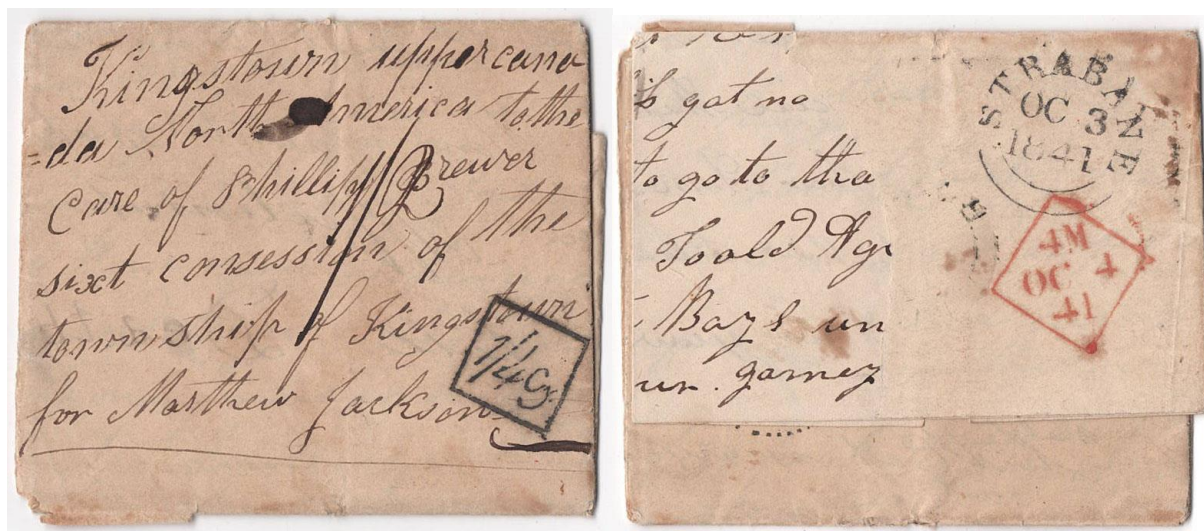 Kingstown uppercana
=da North America to the
Care of Phillip Brewer
sixt consession of the
township of Kingstown
for Marthew Jackson
1
1/4 Cy
s got no
to go to tha
Toold Age
Bays un
ur. gamey
STRABANE
OC 3
1841
4M
OC 4
41